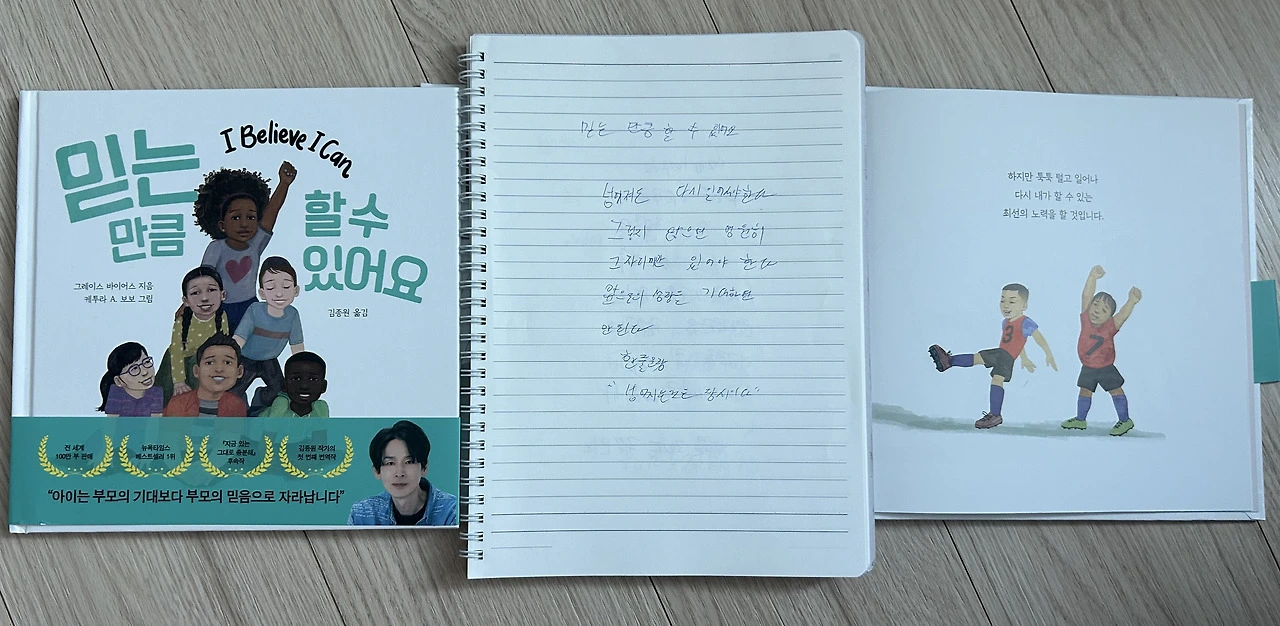 I Believe I Can
믿는
만큼
할 수
있어요
그레이스 바이어스 지음
케투라 A. 보보 그림
김종원 옮김
전 세계
100만 부 판매
뉴욕타임스
베스트셀러 1위
『지금 있는
그대로 충분해』
후속작
김종원 작가의
첫 번째 번역작
“아이는 부모의 기대보다 부모의 믿음으로 자라납니다”
믿는 만큼 할 수 있어요
넘어져도 다시 일어나야한다
그렇지 않으면 영원히
그자리에만 있어야 한다
앞으로의 생각을
안된다
한줄요약
하지만 툭툭 털고 일어나
다시 내가 할 수 있는
최선의 노력을 할 것입니다.
3
7